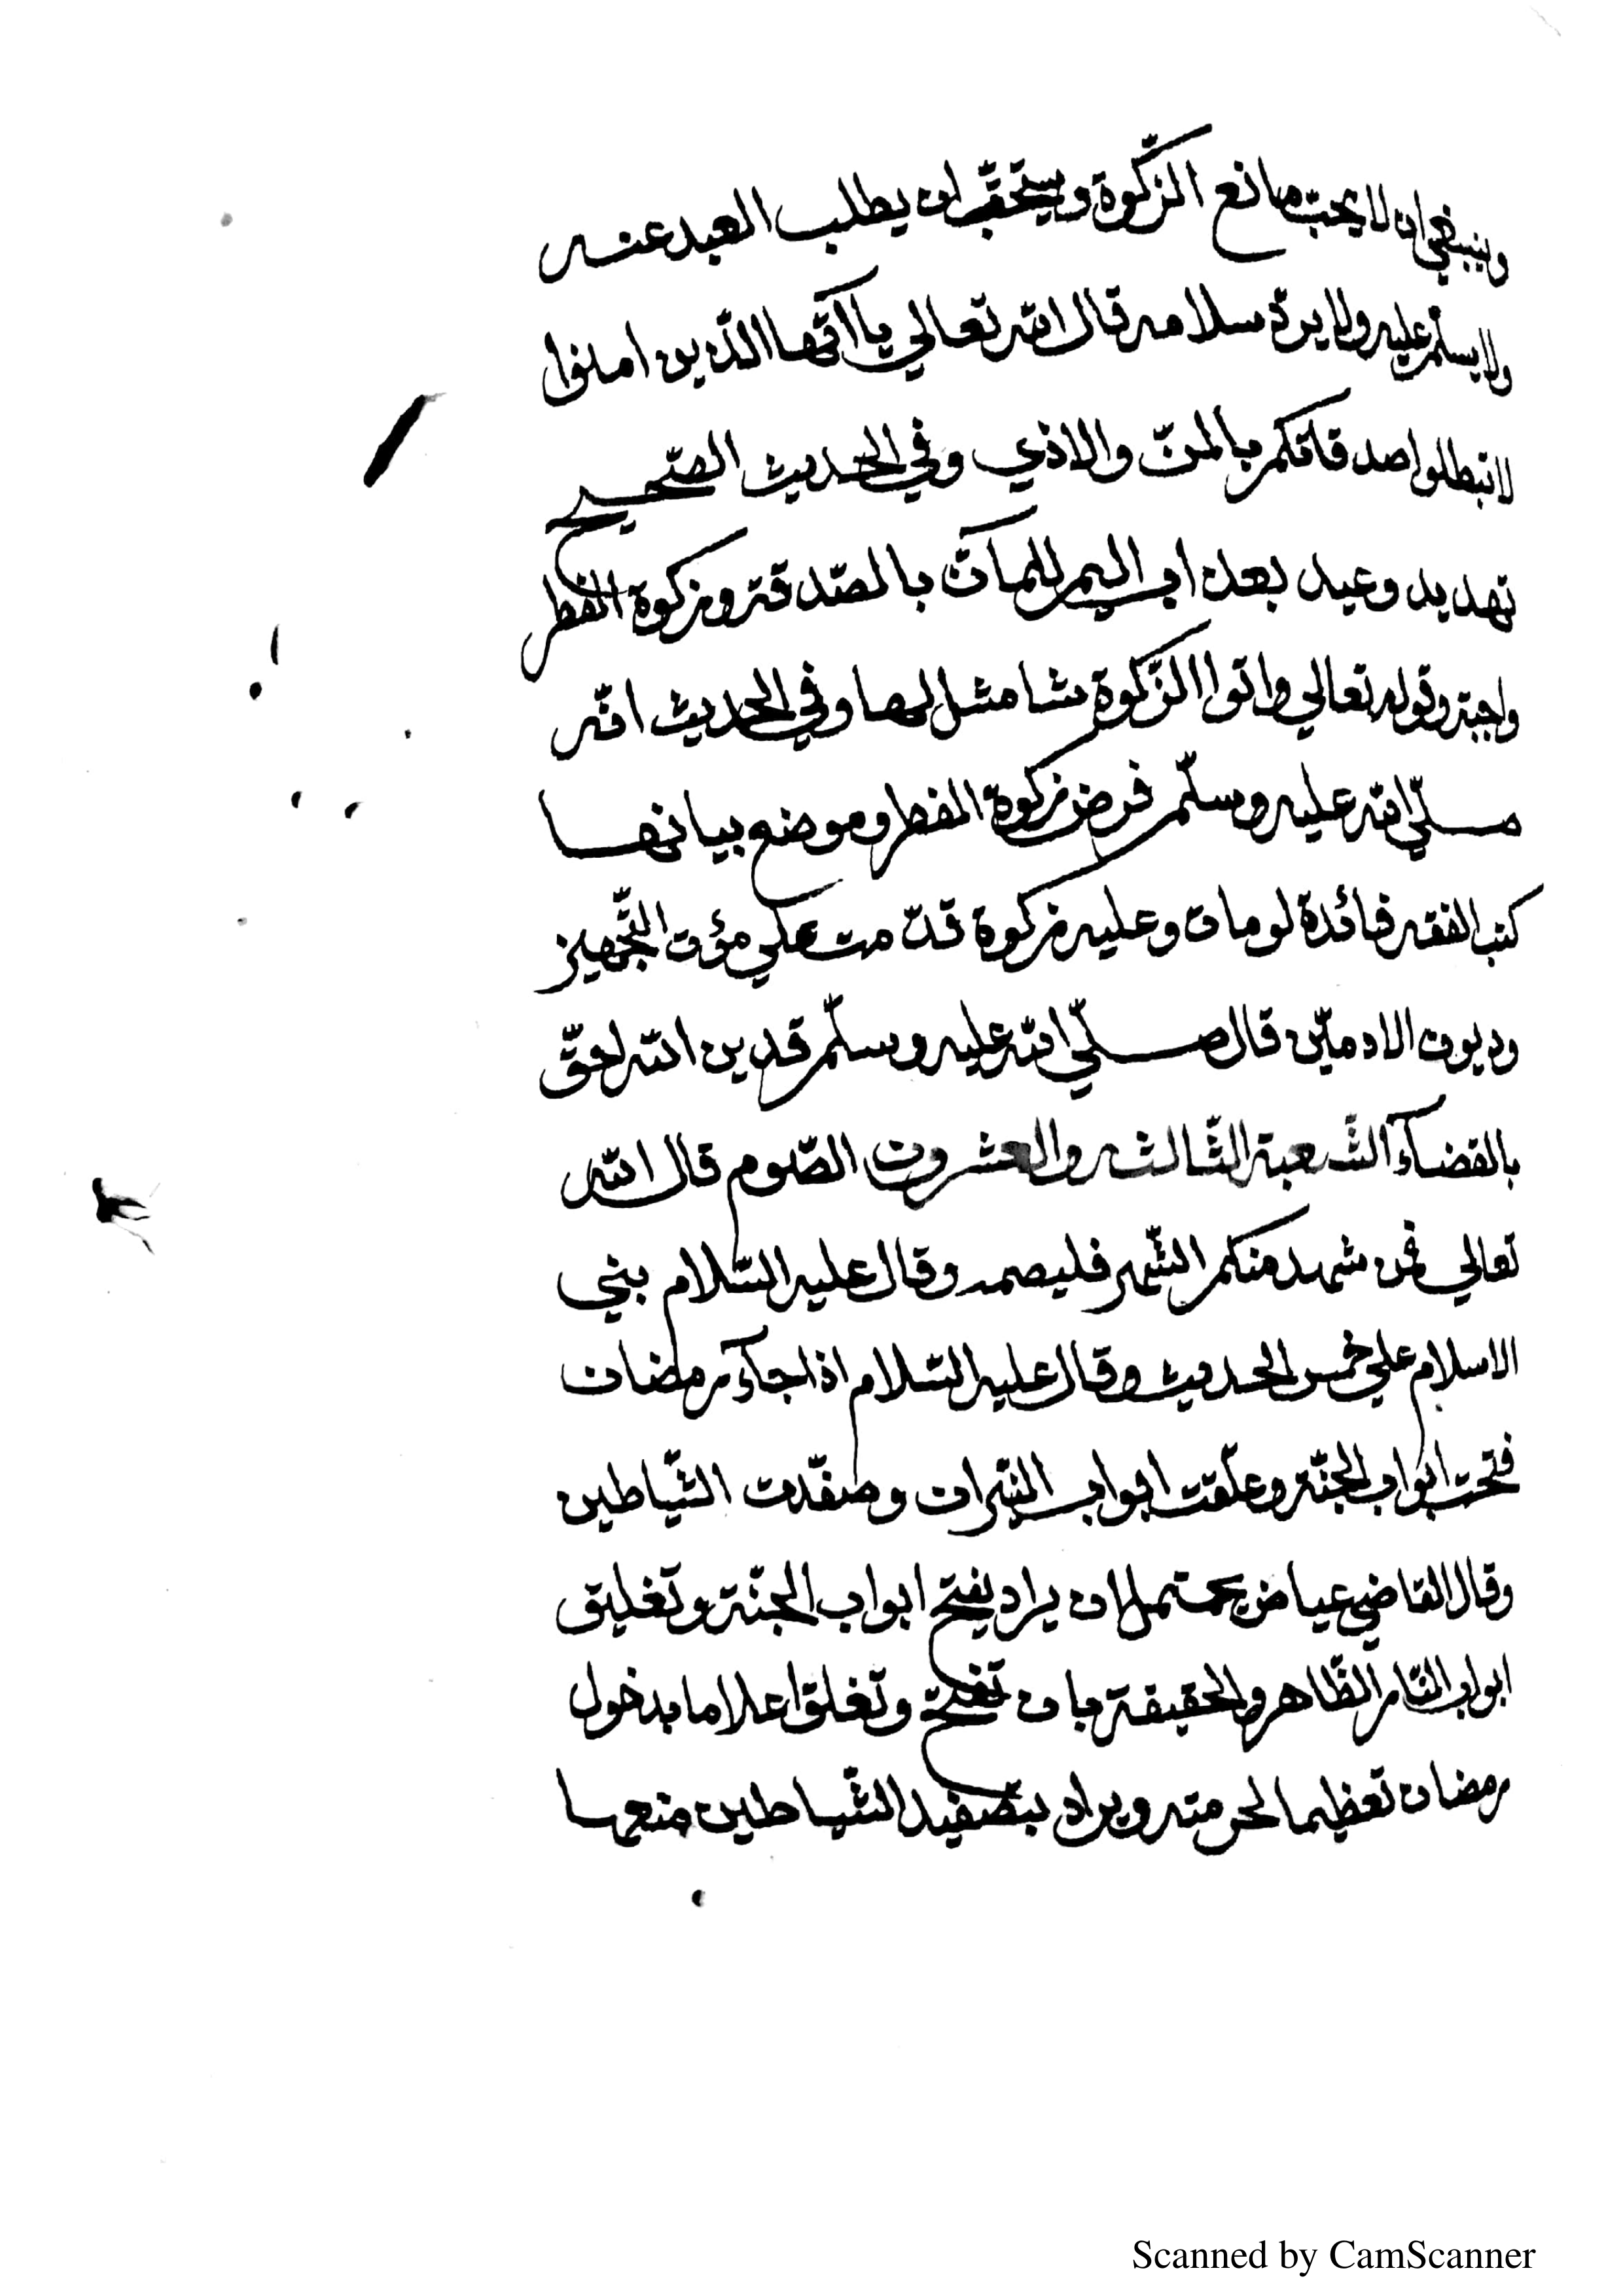 وينبغي ان لا يحب مانع الزكوة ويستحقر ان يطلب العبد عنه
ولا يسلم عليه ولا يردّ سلامه قال الله تعالي يا ايّها الذين امنوا
لا تبطلوا صدقاتكم بالمنّ والاذي وفي الحديث الصّحيح
تهديد وعيد بعذاب اليم للمنّان بالصّدقة وزكوة الفطر
واجبة وقوله تعالي واتوا الزّكوة شامل لها وفي الحديث انّه
صلّي الله عليه وسلّم فرض زكوة الفطر وموضع بيانها
كتب الفقه فائدة لو مات وعليه زكوة قدّمت علي مؤن التّجهيز
وديون الادميّن قال صلّي الله عليه وسلّم فدين الله احقّ
بالقضآء الشّعبة الثّالثه والعشرون الصّوم قال الله
تعالي فمن شهد منكم الشّهر فليصمه وقال عليه السّلام بني
الاسلام علي خمس الحديث وقال عليه السّلام اذا جآء رمضان
فتحت ابواب الجنّة وغلّقت ابواب النّيران وصفّدت الشّياطين
وقال القاضي عياض يحتمل ان يراد بفتح ابواب الجنّة وتغليق
ابواب النّار الظّاهر والحقيقة بان تفتح وتغلق اعلاما بدخول
رمضان تعظيما لحرمته ويراد بتصفيد الشّياطين منعها
Scanned by CamScanner